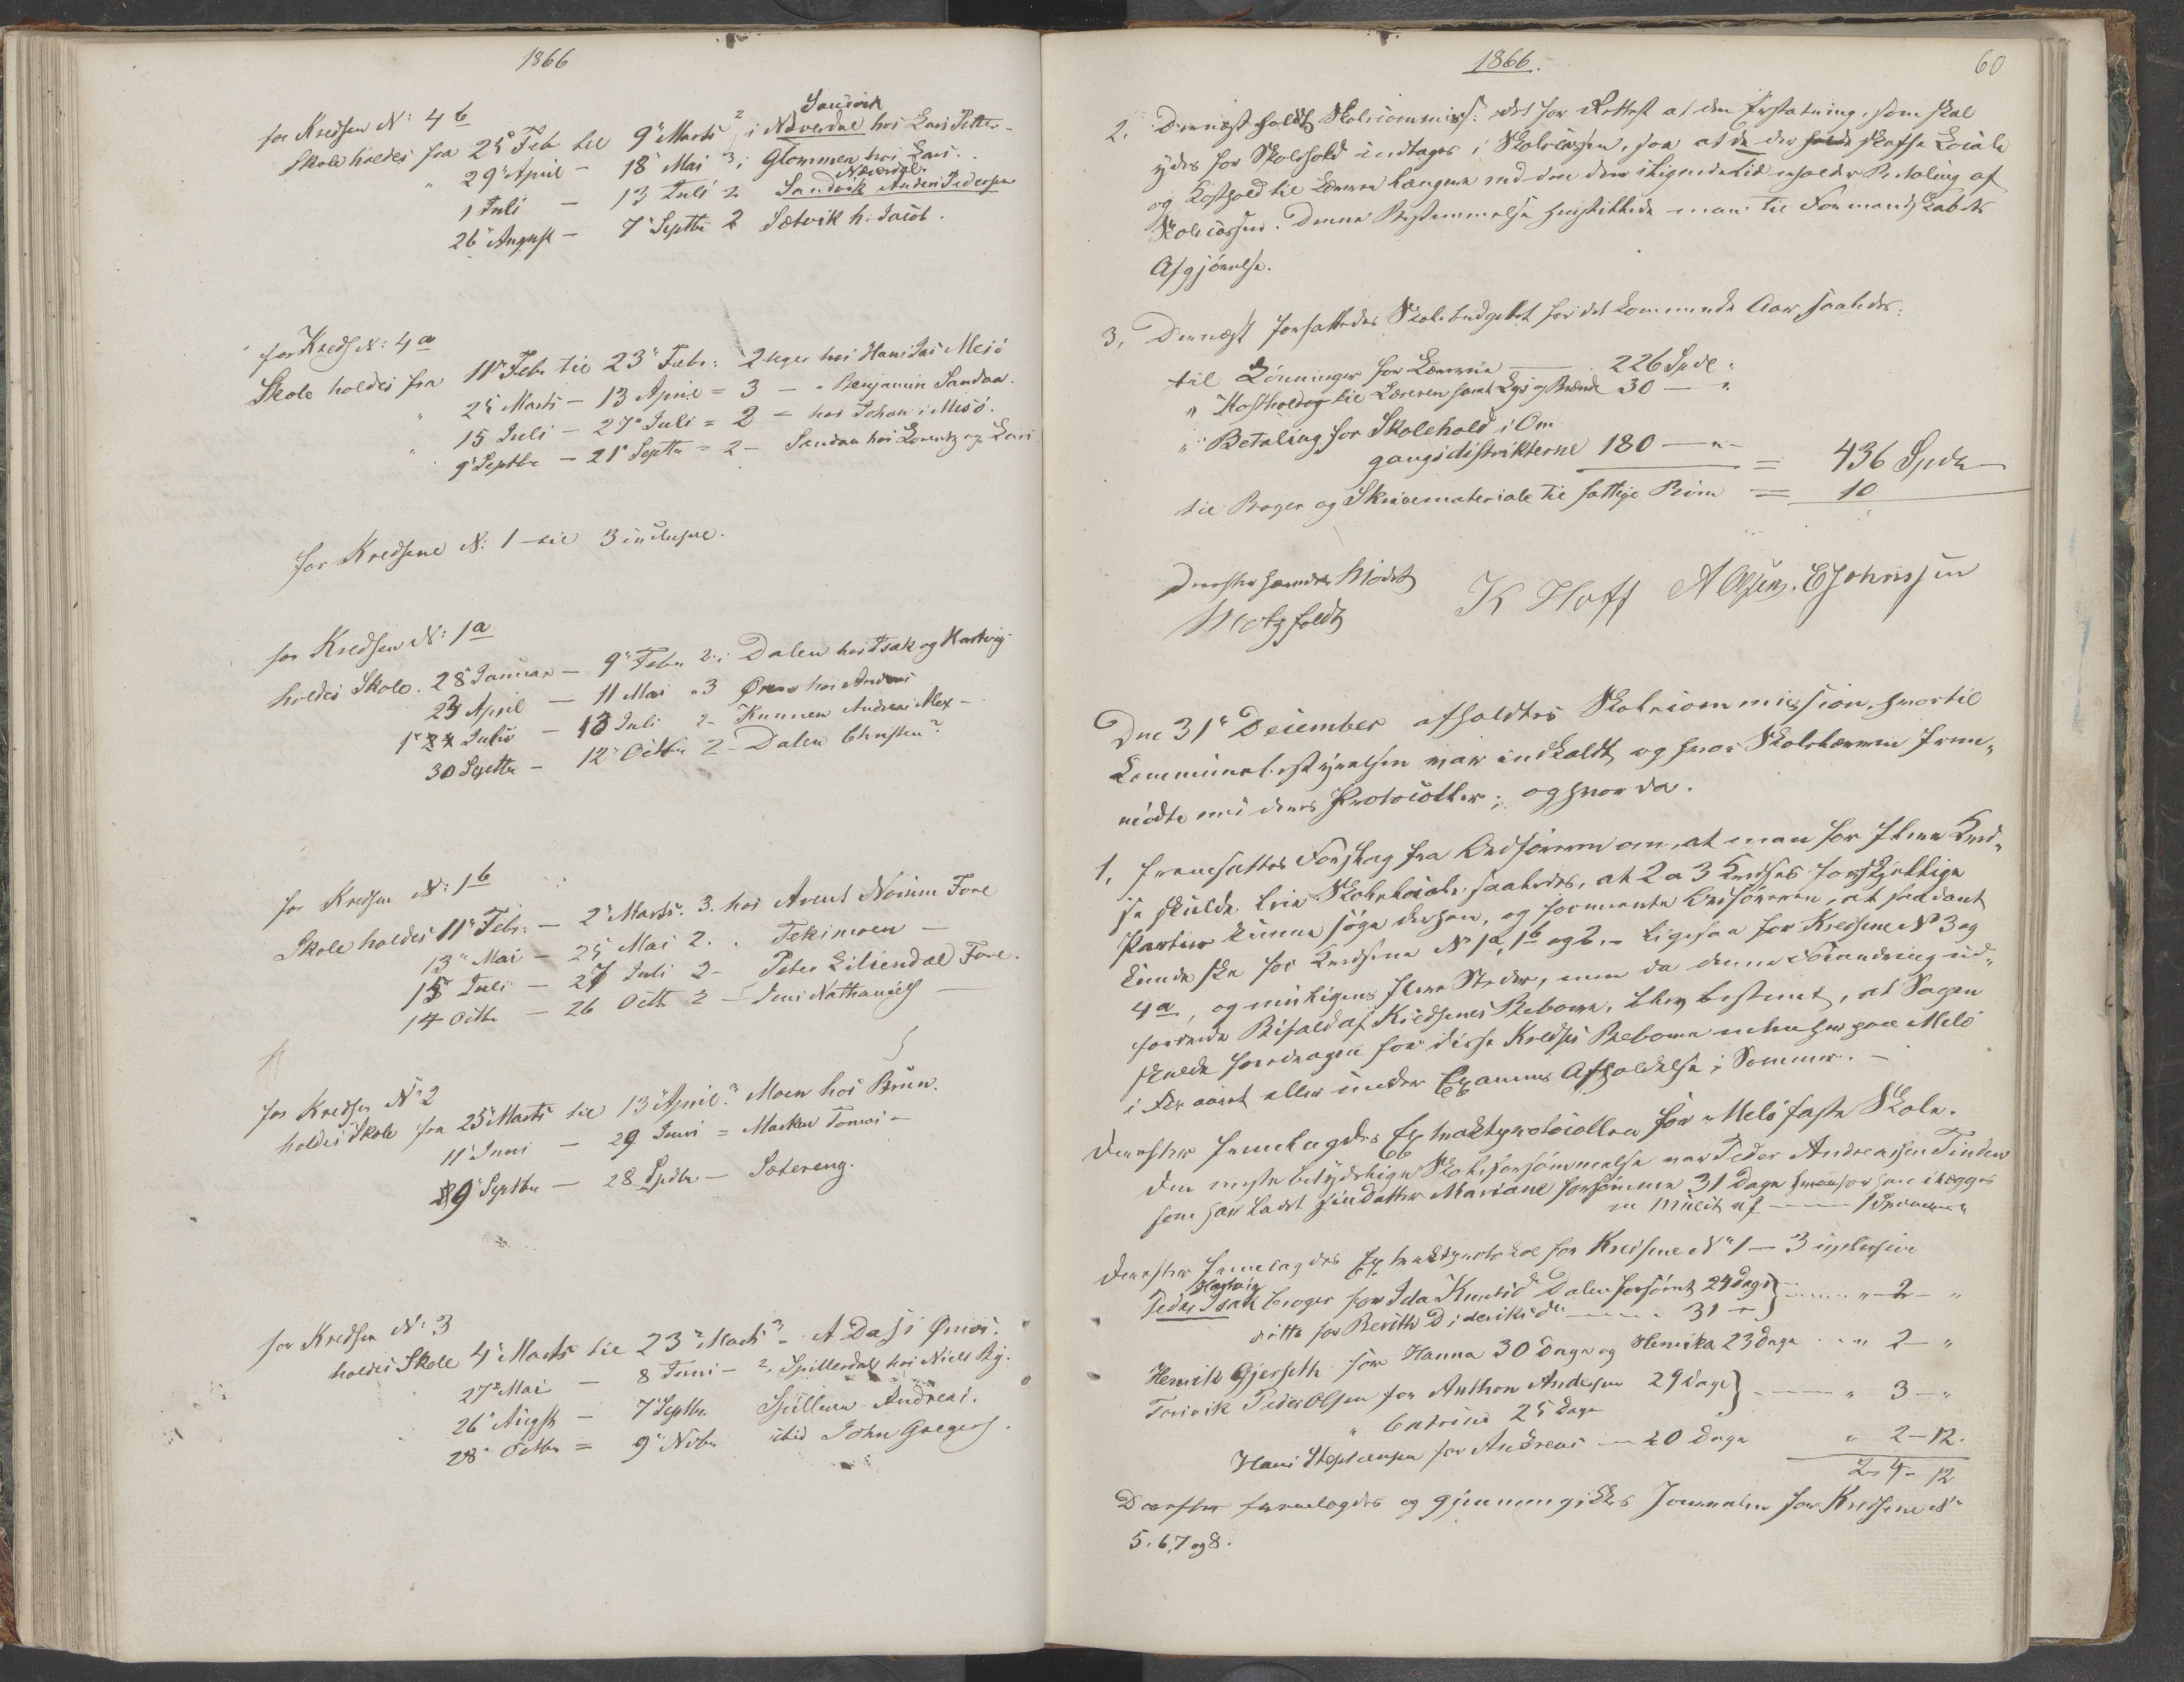 1866
for Kredsen N: 4b
Sandvik
Skole holdes fra 25 Feb til 9 Marts 2 i Nåverdal hos Lars Petter-
" 29 April - 18 Mai 3 i Glommen hos Lars.
Nåverdal
1 Juli - 13 Juli 2 Sandvik Anders Pedersen
26 August - 7 Septbr 2 Sætvik h. Jacob.
for Kreds N: 4a
Skole holdes fra 11 Febr til 23 Febr: 2 Uger hos Hans Jas Mesø
" 25 Marts - 13 April = 3 - " Benjamin Sandaa.
" 15 Juli - 27 Juli = 2 = hos Johan i Mesø.
9 Septbr - 21 Septbr = 2 - Sandaa hos Lorentz og Lars
for Kredsene N: 1 til 3 inclusive.
for Kredsen N: 1a
holdes Skole. 28 Januar - 9 Febr 2 i Dalen hos Isak og Hartvig
23 April - 11 Mai " 3 Ørnes hos Anders
1 Juli - 13 Juli 2 - Kunnen Andreas Alex -
30 Septbr - 12 Octbr 2 - Dalen Christen
for Kredsen N: 1b
Skole holdes 11 Febr: - 2 Marts. 3. hos Arent Fore
13 Mai - 25 Mai 2. . Tekimoen -
15 Juli - 27 Juli 2 - Peter Liliendal Fore.
14 Octbr - 26 Octb 2 - Jens Nathaniels -
for Kredsen N 2
holdes Skole fra 25 Marts til 13 April 3 Moen hos Brun.
11 Juni - 29 Juni = Marken Tomas -
9 Septbr - 28 Spbr - Sætereng.
for Kredsen N: 3
holdes Skole 4 Marts til 23 Marts 3 - A Dass Ørnes.
27 Mai - 8 Juni - 2, Spilderdal hos Niels Big.
26 Augst - 7 Septbr Spilderen Andreas.
28 Octbr = 9 Novbr ibid John Gregers.
1866.
60
2. Dernæst holdt Skolecommiss: det for Rettest at den Erstatning, som skal
ydes for Skolehold indtages i Skolecassen, saa at de der skaffe Locale
og Kosthold til Læreren længere end den dem tilligende Tid erholder Betaling af
Skolecassen. Denne Bestemmelse henstillede man til Formandskabets
Afgjørelse.
3. Dernæst forfattedes Skolebudgettet for det kommende Aar saaledes:
til Lønninger for Lærerne - 226 Spdl "
" Kosthold til Læreren samt Lys og Brænde 30 - "
" Betaling for Skolehold i Om
gangsdistrikterne 180 - " - = 436 Spdr
til Bøger og Skrivemateriale til fattige Børn = 10
Derefter hævedes Mødet
Motzfeldt K Hoff A Olsen. E Johnssen
Den 31 December afholdtes Skolecommission, hvortil
Kommunebestyrelsen var indkaldt og hvor Skolelærerne frem-
mødte med deres Protocoller; og hvor da.
1, fremsattes Forslag fra Ordføreren om, at man for flere Kred-
se skulde leie Skolelocale saaledes, at 2 a 3 Kredses forskjellige
Partier kunne søge dertil, og formente Ordføreren, at saadant
kunde ske for Kredsene N 1a, 1b og 2. - ligesaa for Kredsene N 3 og
4a, og muligens flere Steder, men da denne Forandring ud-
fordrede Bifald af Kredsenes Beboere, blev bestemt, at Sagen
skulde foredrages for disse Kredses Beboere her paa Melø
i Foraaret eller under Examens Afholdelse i Sommer. -
Derefter fremlagdes Extraktprotocollen for Melø faste Skole.
Den mest betydelige Skoleforsømmelse var Peder Andreassen Tinden
som har ladt sin Datter Mariane forsømme 31 Dage hvorfor han ilægges
en Mulct af - 1 Spd
Derefter fremlagdes Extraktprotokol for Kredsene N 1 - 3 inclusive
Hartvig
Peder Isak for Ida Knudsd Dalen forsømt 24 Dage } " 2 - "
ditto for Berith Dideriksd - 31 -
Henrik Gjerseth for Hanna 30 Dage og Henrika 23 Dage " 2 - "
Torsvik Peder Olsen for Anthon Andersen 29 Dage } - " 3 - "
" Catrine 25 Dage
Hans Stephensen for Andreas - 20 Dage " 2 - 12.
2 - 4 - 12
Derefter fremlagdes og gjennemgikkes Journaler for Kredsene N
5. 6, 7 og 8.